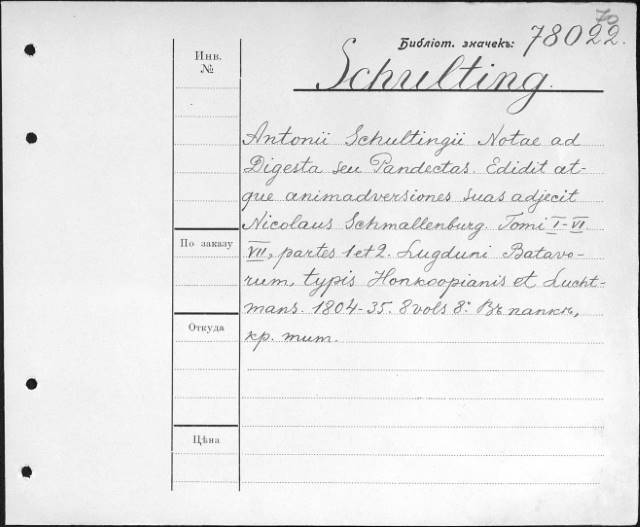 70
Библіот. значекъ: 78022.
Инв.
№
Schulting.
Antonii Schultingii Notae ad
Digesta seu Pandectas. Edidit at-
que animadversiones suas adjecit
Nicolaus Schmallenburg. Tomi I-VI.
По заказу
VII, partes 1 et 2. Lugduni Batavo-
rum, typis Honkoopianis et Lucht-
mans. 1804-35. 8 vols 8º. Въ папкѣ,
Откуда
кр. тит.
Цѣна